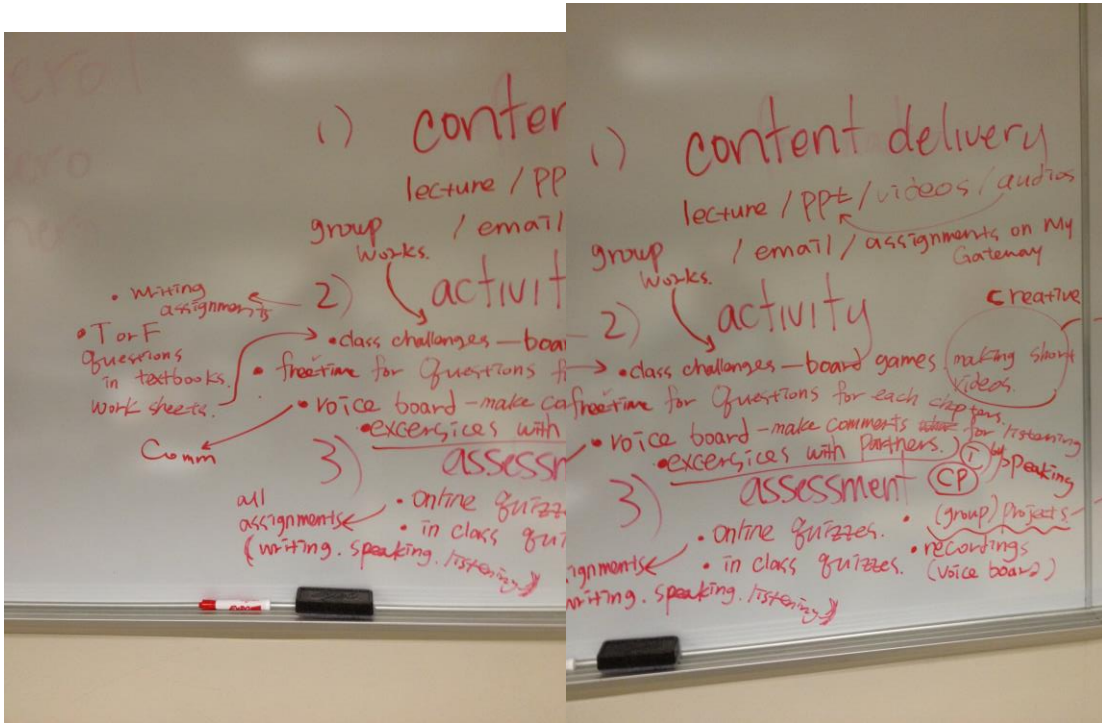 1) conten
lecture / PP
/ email /
group
works.
2) activit
• writing
assignments
• T or F
questions
in textbooks.
work sheets.
• class challenges — boar
• freetime for Questions f
• voice board - make co
Comm
• excersices with
3) assessm
all
assignments
(writing. speaking. listening)
• online quizz
• in class quiz
1) content delivery
lecture / ppt / videos / audios
/ email / assignments on My
Gateway
group
works.
2) activity
creative
making short
videos.
• class challenges — board games
freetime for Questions for each chpters.
• voice board - make comments for listening
• excersices with Partners.) I speaking
CP
3) assessment
• (group) Projects
• online quizzes.
• in class quizzes.
• recordings
(voice board)
ignments
writing. speaking. listening)